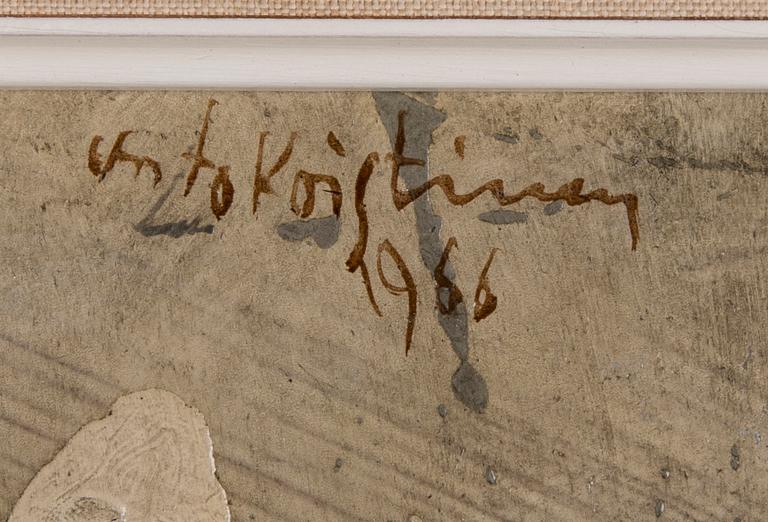 Unto Koistinen
1966